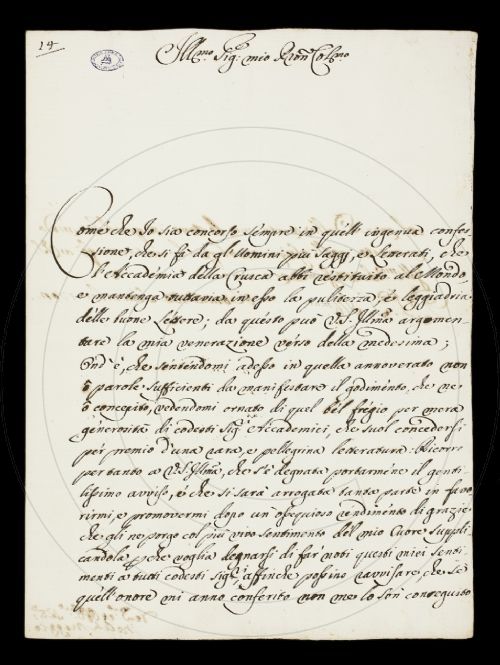 19
Ill.mo Sig.r mio Pron Col.mo
Comè che Io sia concorso sempre in quell' ingenua confes-
sione, che si fà da gl'Uomini più saggj, e Letterati, che
l'Accademia della Crusca abbi restituito al Mondo,
e mantenga tuttavia in esso la pulitezza, e leggiadria
delle buone Lettere; da questo può V.S. Ill.ma argomen-
tare la mia venerazione verso della medesima;
Ond'è, che sentendomi adesso in quella annoverato non
ò parole sufficienti da manifestare il godimento, che ne
ò concepito, vedendomi ornato di quel bel fregio per mera
generosità di codesti Sig.ri Accademici, che suol concedersi
per premio d'una rara, e pellegrina letteratura. Ricorro
pertanto a V.S. Ill.ma, che s'è degnata portarmene il genti-
lissimo avviso, e che si sarà arrogata tanta parte in favo-
rirmi, e promovermi dopo un ossequioso rendimento di grazie
che gli ne porgo col più vivo sentimento del mio Cuore suppli-
candola, che voglia degnarsi di far noti questi miei senti-
menti à tutti codesti Sig.ri, affinche possino ravvisare, che se
quell'onore mi anno conferito non me lo son conseguito